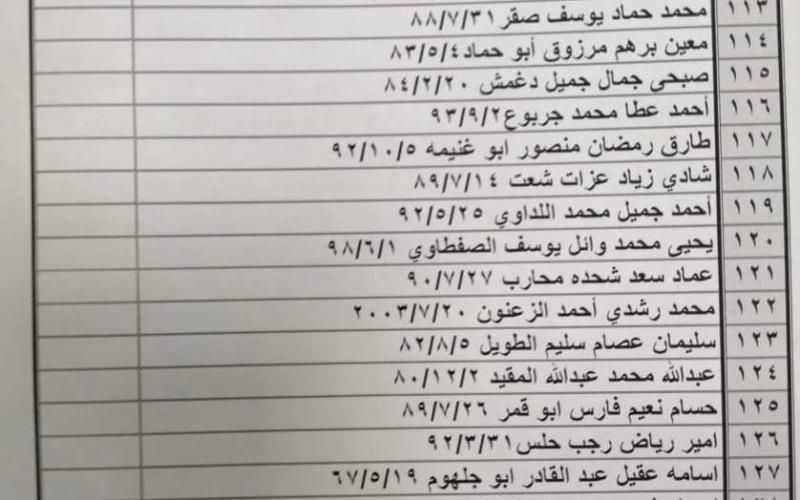 ١١٣ محمد حماد يوسف صقر ٨٨/٧/٣١
١١٤ معين برهم مرزوق أبو حماد ٨٣/٥/٤
١١٥ صبحى جمال جميل دغمش ٨٤/٢/٢٠
١١٦ أحمد عطا محمد جربوع ٩٣/٩/٢
١١٧ طارق رمضان منصور ابو غنيمه ٩٢/١٠/٥
١١٨ شادي زياد عزات شعت ٨٩/٧/١٤
١١٩ أحمد جميل محمد اللداوي ٩٢/٥/٢٥
١٢٠ يحيى محمد وائل يوسف الصفطاوي ٩٨/٦/١
١٢١ عماد سعد شحده محارب ٩٠/٧/٢٧
١٢٢ محمد رشدي أحمد الزعنون ٢٠٠٣/٧/٢٠
١٢٣ سليمان عصام سليم الطويل ٨٢/٨/٥
١٢٤ عبدالله محمد عبدالله المقيد ٨٠/١٢/٢
١٢٥ حسام نعيم فارس ابو قمر ٨٩/٧/٢٦
١٢٦ امير رياض رجب حلس ٩٢/٣/٣١
١٢٧ اسامه عقيل عبد القادر ابو جلهوم ٦٧/٥/١٩